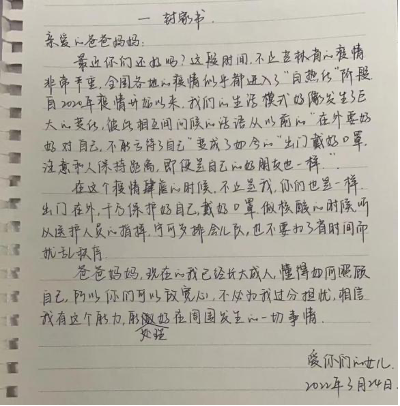 一封家书.
亲爱的爸爸妈妈:
最近你们还好吗？这段时间,不止吉林省的疫情
非常严重,全国各地的疫情似乎都进入了"自热化"阶段
自2020年疫情开始以来,我们的生活模式好像发生了巨
大的变化,彼此相互间问候的话语从以前的"在外要好
好对自己,不能亏待了自己"变成了如今的"出门戴好口罩,
注意和人保持距离,即便是自己的好朋友也一样."
在这个疫情肆虐的时候,不止是我,你们也是一样.
出门在外,千万保护好自己,戴好口罩,做核酸的时候听
从医护人员的指挥,宁可多排会儿队,也不要为了省时间而
扰乱秩序.
爸爸妈妈,现在的我已经长大成人,懂得如何照顾
自己,所以你们可以放宽心,不必为我过分担忧,相信
我有这个能力,能处理好在周围发生的一切事情.
爱你们的女儿.
2022年3月24日.